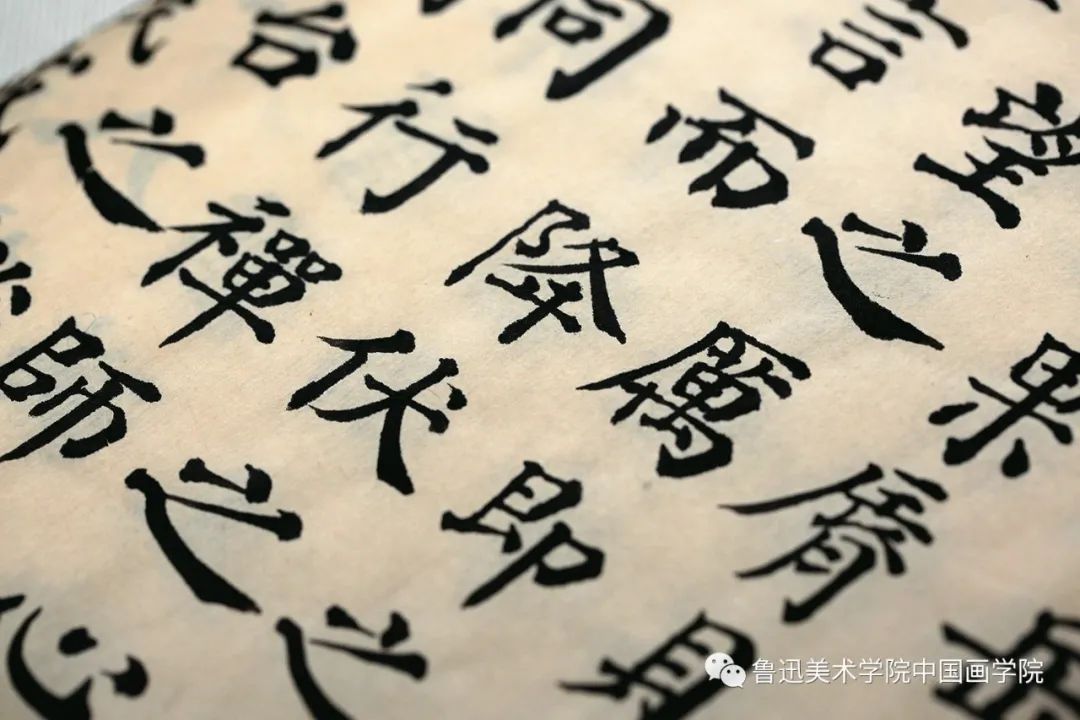 言望
同而之果
行陟厲脩
之禪伏即身
師之之
心
鲁迅美术学院中国画学院